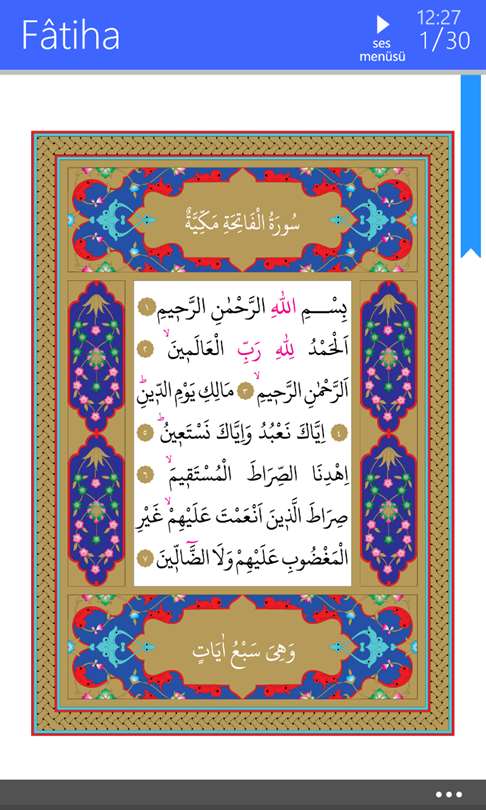 Fâtiha
12:27
ses
menüsü
1/30
سُورَةُ الْفَاتِحَةِ مَكِّيَّةٌ
بِسْــمِ اللّٰهِ الرَّحْمٰنِ الرَّحِيمِ ١
اَلْحَمْدُ لِلّٰهِ رَبِّ الْعَالَمِينَۙ ٢
اَلرَّحْمٰنِ الرَّحِيمِۙ ٣ مَالِكِ يَوْمِ الدِّينِۜ
٤ اِيَّاكَ نَعْبُدُ وَاِيَّاكَ نَسْتَعِينُۜ ٥
اِهْدِنَا الصِّرَاطَ الْمُسْتَقِيمَۙ ٦
صِرَاطَ الَّذِينَ اَنْعَمْتَ عَلَيْهِمْۙ غَيْرِ
الْمَغْضُوبِ عَلَيْهِمْ وَلَا الضَّٓالِّينَ ٧
وَهِيَ سَبْعُ اٰيَاتٍ